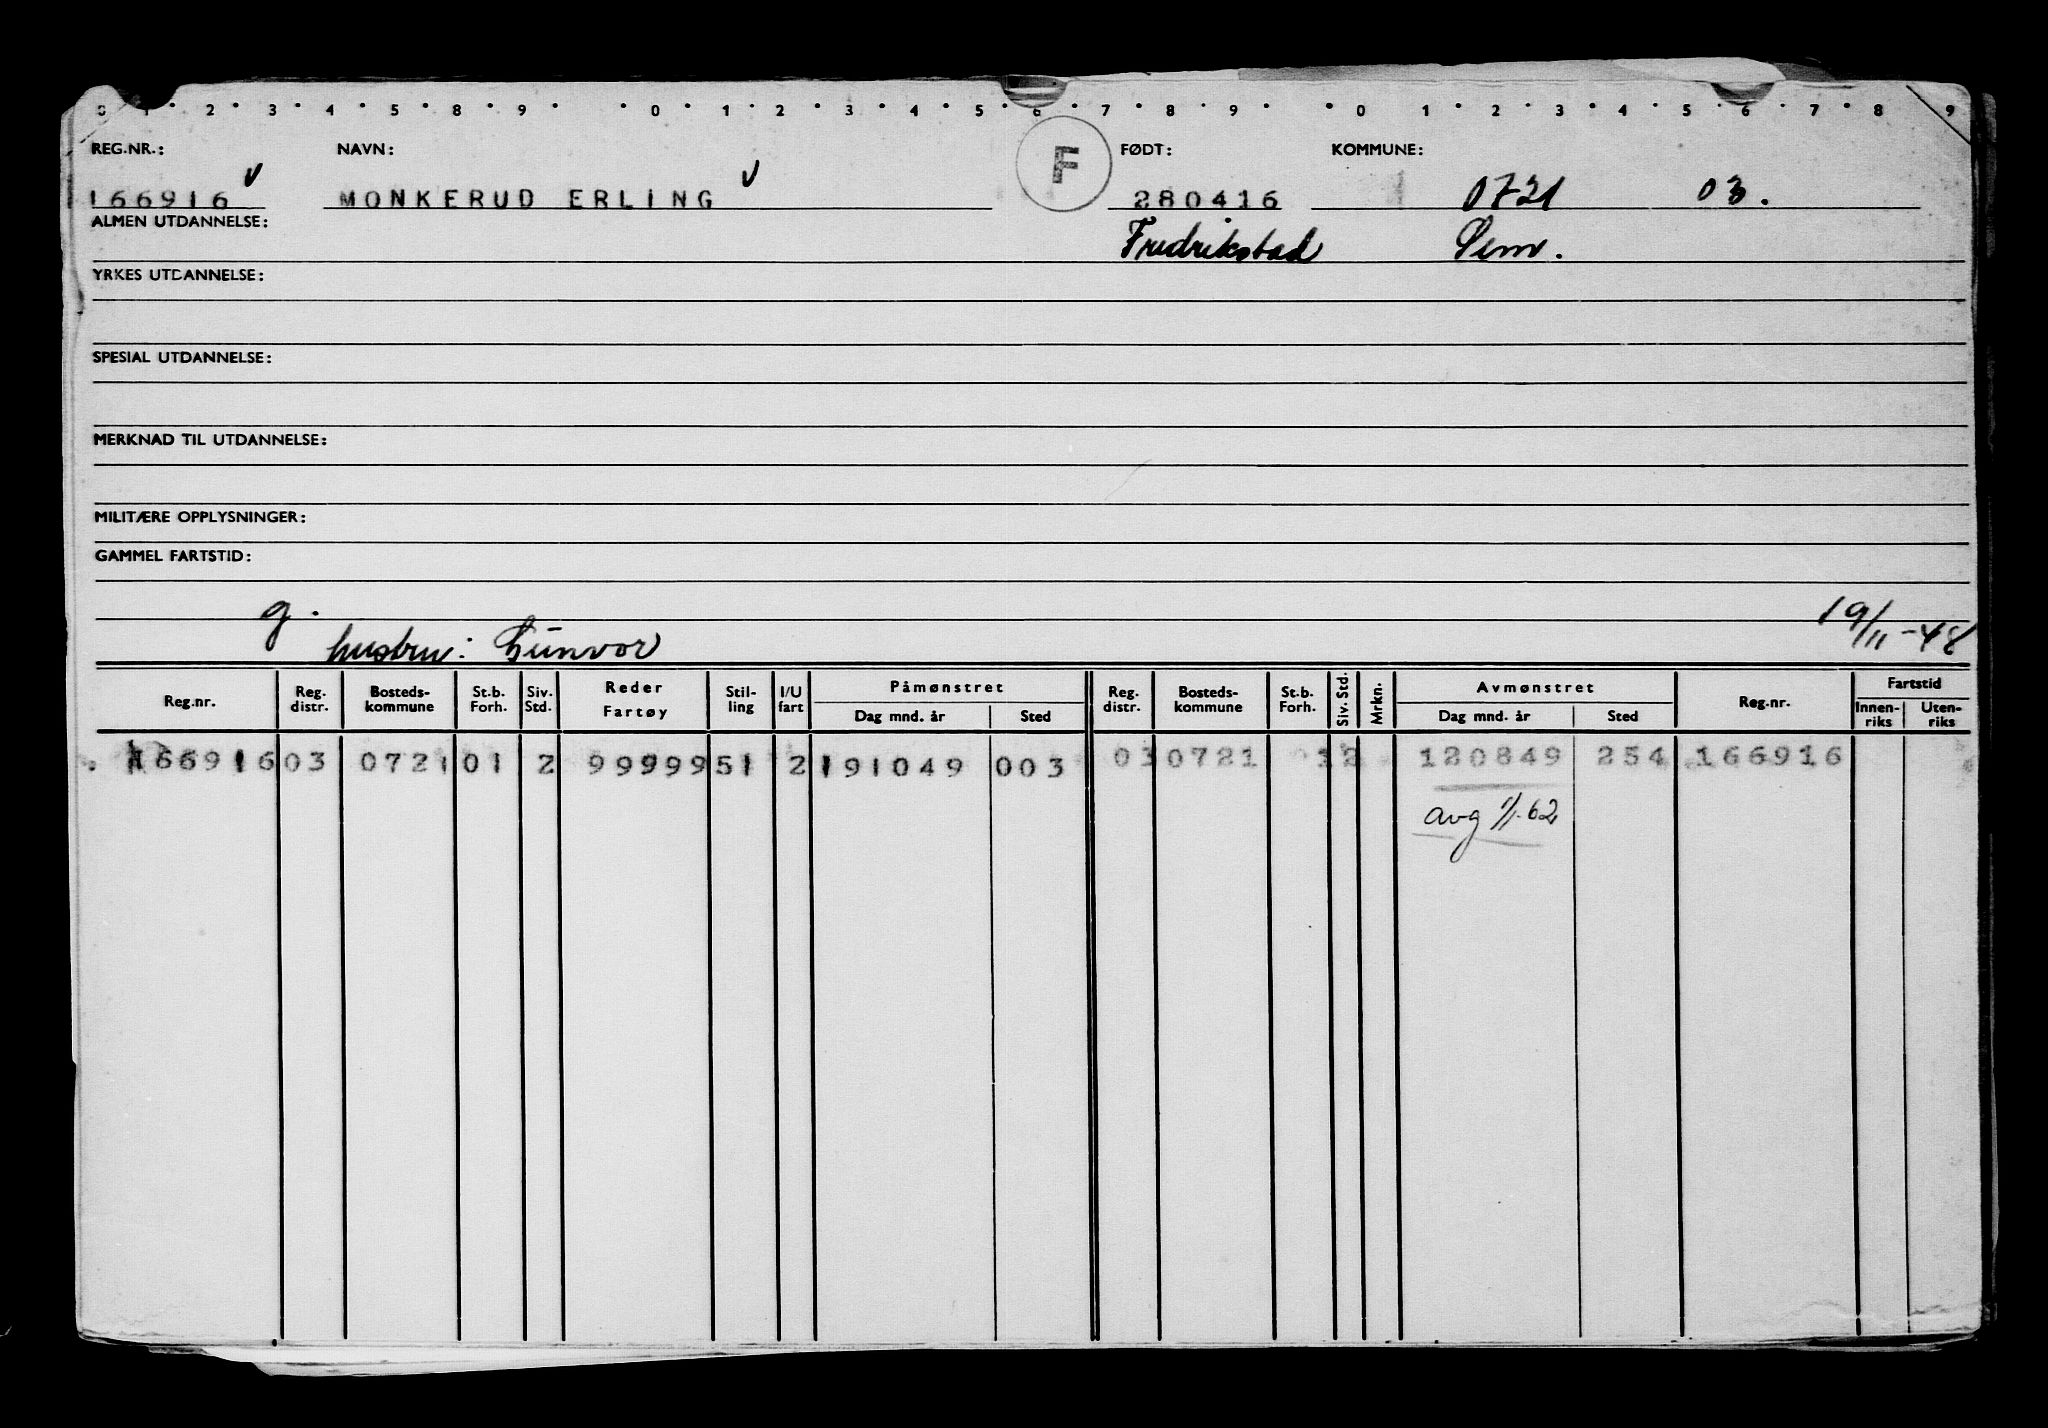 0 1 2 3 4 5 8 9 0 1 2 3 4 5 6 7 8 9 0 1 2 3 4 5 6 7 8 9
REG.NR.: NAVN: F FØDT: KOMMUNE:
166916 v MONKERUD ERLING v 280416 0721 03.
ALMEN UTDANNELSE: Fredrikstad Sem.
YRKES UTDANNELSE:
SPESIAL UTDANNELSE:
MERKNAD TIL UTDANNELSE:
MILITÆRE OPPLYSNINGER:
GAMMEL FARTSTID:
g. 19/11-48
hustru: Gunvor
Reg.nr. Reg. distr. Bosteds-kommune St.b. Forh. Siv. Std. Reder Fartøy Stil-ling I/U fart Påmønstret Dag mnd. år Sted Reg. distr. Bosteds-kommune St.b. Forh. Siv. Std. Mrkn. Avmønstret Dag mnd. år Sted Reg.nr. Fartstid Innen-riks Uten-riks
166916 03 0721 01 2 99999 51 2 191049 003 03 0721 1 2 120849 254 166916
avg 1/1.62